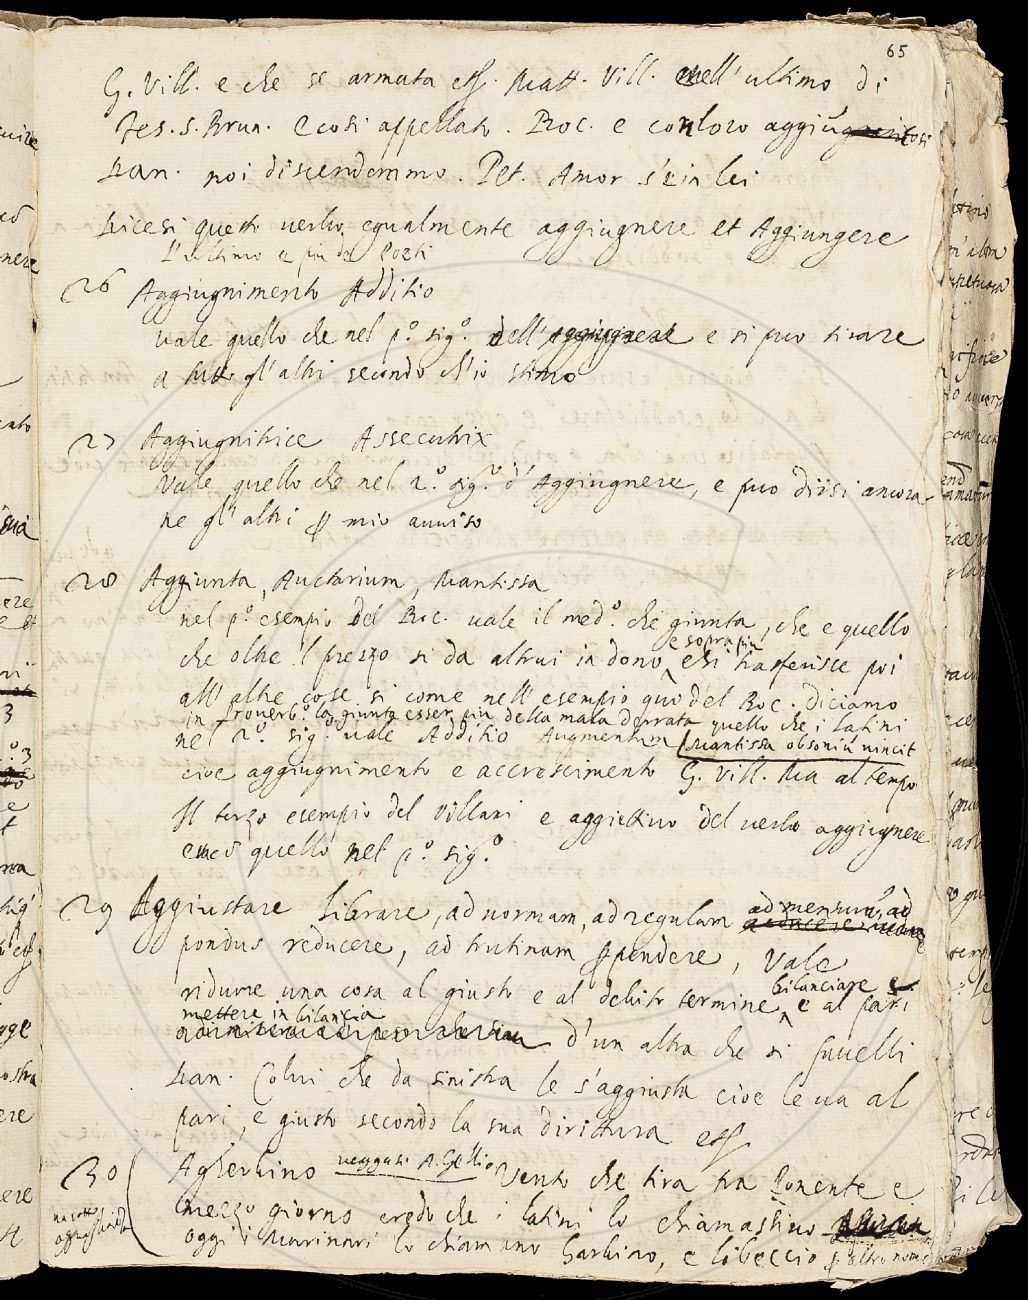 65
G. Vill. e che se armata
Matt. Vill. nell' ultimo di
Tes. s. Brun. e cosi appellato. Boc. e con loro aggiu
Dan. noi discendemmo. Pet. Amor s'è in lei
Dicesi questo verbo egualmente aggiugnere et Aggiungere
l'ultimo e piu de Poeti
26 Aggiugnimento Additio
vale quello che nel p.º sig.º dell' aggiugnere e si puo tirare
a tutti gl' altri secondo ch'io stimo
27 Aggiugnitrice Assecutrix
Vale quello che nel 2.º sig.º d' Aggiugnere, e puo dirsi ancora
ne gl' altri p mio avviso
28 Aggiunta, Auctarium, Mantissa
nel p.º esempio del Boc. vale il med.º che giunta, che e quello
e sopra piu
che oltre 'l prezzo si da altrui in dono, e si trasferisce poi
all' altre cose si come nell' esempio qui del Boc. diciamo
in Proverb.º la giunta esser piu della mala derrata quello che i latini
nel 2.º sig.º vale Additio Augmentum Mantissa obsoniũ vincit
cioe aggiugnimento e accrescimento G. Vill. Ma al tempo
Il terzo esempio del Villani e aggiettivo del verbo aggiugnere
quello nel p.º sig.º
29 Aggiustare librare, ad normam, ad regulam ad mensurã, ad
pondus reducere, ad trutinam, Vale
ridurre una cosa al giusto e al debito termine bilanciare e al pari
mettere in bilancia
d'un altra che si favelli
Dan. Colui che da sinistra le s'aggiusta cioe le va al
pari, e giusto secondo la sua dirittura
30 Agherbino veggasi A. Gellio Vento che tira tra Ponente e
mezzo giorno credo che i latini lo chiamassino
oggi i Marinari lo chiamano Garbino, e libeccio p altro nome